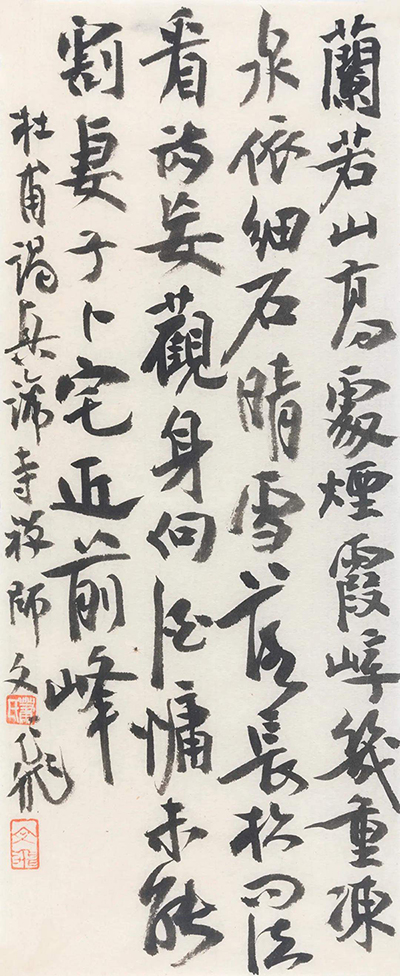 蘭若山高處煙霞嶂幾重凍
泉依細石晴雪落長松問法
看詩妄觀身向酒慵未能
割妻子卜宅近前峰
杜甫謁真諦寺禪師 文飛
文飛